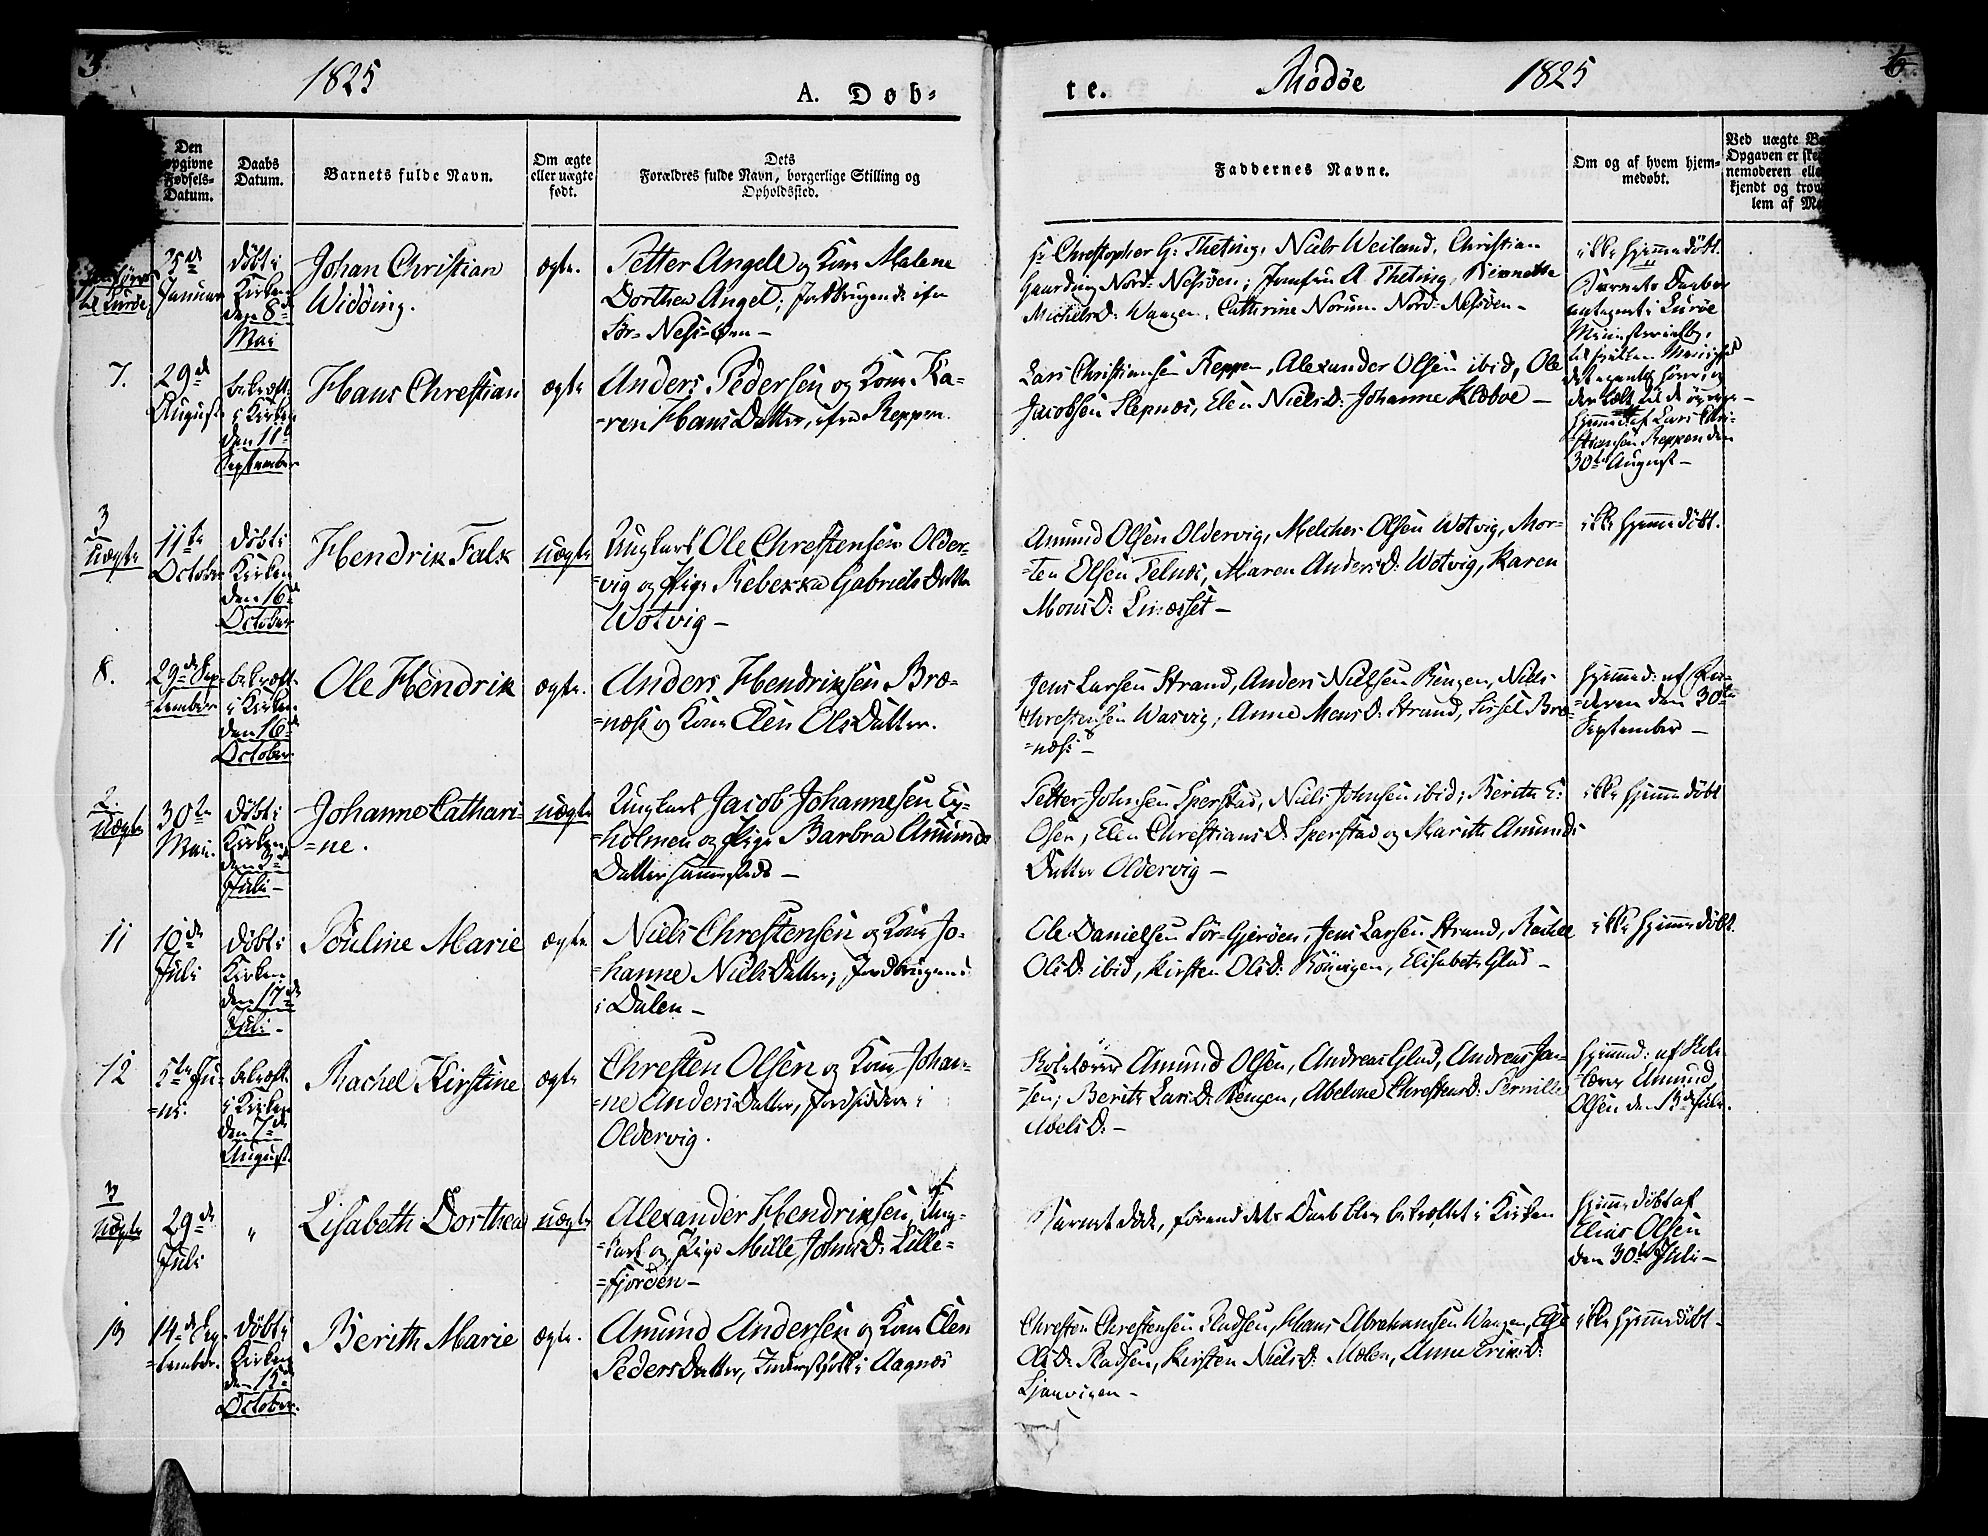 3
1825
A. Døb-
te.
Rödöe
1825
6
Den
opgivne
Fødsels-
Datum.
Daabs
Datum.
Barnets fulde Navn.
Om ægte
eller uægte
født.
Dets
Forældres fulde Navn, borgerlige Stilling og
Opholdssted.
Faddernes Navne.
Om og af hvem hjem-
medøbt.
Ved uægte
Opgaven er
nemoderen
kjendt og
lem af
Januar
döbt i
Kirken
den 8de
Mai
Johan Christian
Widding.
ægte.
Petter Angell og Kone Malene
Dorthea Angel; Jordbrugende ifra
Sör-Nesö-Øen-
Hr Christopher G: Theting, Niels Weiland, Christian
Gaarding Nord-Nesöen; Jomfru A Theting,
MichelsD: Waagen, Cathrine Norum Nord-Nesöen-
ikke hjemmedöbt.
Barnets Daab er
antegnet i Luröe
7.
29de
August
bekræft:
i Kirken
den 11te
September
Hans Chrestian
ægte
Anders Pedersen og Kone Ka-
=ren HansDatter, ifra Reppen.
Lars Christiansen Reppen, Alexander Olsen ibid, Ole
Jacobsen Slepnæs, Elen NielsD: Johanne Kleboe-
hjemmed: af Lars Chri-
=stiansen Reppen den
30te August-
3
uægte
11te
October
döbt i
Kirken
den 16de
October
Hendrik Falk
uægte
Ungkarl Ole Chrestensen Older-
=vig og Pige Rebekka GabrielsDatter
Wotvig-
Amund Olsen Oldervig, Melcher Olsen Wotvig, Mor-
=ten Olsen Telnæs, Maren AndersD: Wotvig, Karen
MonsD: Linæsset-
ikke hjemmedöbt.
8.
29de Sep-
=tember
bekræft:
i Kirken
den 16de
October
Ole Hendrik
ægte.
Anders Hendriksen Bræ-
=næs og Kone Elen OlsDatter.
Jens Larsen Strand, Anders Nielsen Ringen, Niels
Chrestensen Wasvig, Anne MonsD: Strand, Sissel Bræ-
=næs-
hjemmed: af Fa-
=deren den 30te
September-
2.
uægte
30te
Mai.
döbt i
Kirken
den
Juli-
Johanne Cathari-
=ne.
uægte
Ungkarl Jacob Johannesen Ey-
=holmen og Pige Barbra Amunds
Datter sammesteds-
Petter Johnsen Sperstad, Niels Johnsen ibid; Berith E:
Osen, Elen ChrestiansD: Sperstad og Marith Amunds
Datter Oldervig-
ikke hjemmedöbt
11
10de
Juli
döbt i
Kirken
den 17de
Juli-
Pouline Marie
ægte.
Niels Chrestensen og Kone Jo-
=hanne NielsDatter; Jordbrugende
i Dalen-
Ole Danielsen Sör-Gjeröen, Jens Larsen Strand, Rachel
OlsD: ibid, Kirsten OlsD: Rönvigen, Elisabeth Glad-
ikke hjemmedöbt.
12
5te Ju-
=ni.
bekræft:
i Kirken
den 7de
August.
Rachel Kirstine
ægte
Chresten Olsen og Kone Johan-
=ne AndersDatter, Jordsiddere i
Oldervig.
Skolelærer Amund Olsen, Andreas Glad, Andreas Jan-
=sen; Berith LarsD: Ringen, Abelone ChrestensD: Pernille
AbelsD:-
hjemmed: af Skole-
lærer Amund
Olsen den 13de Juli.
3
uægte
29de
Juli
"
Lisabeth Dorthea
uægte
Alexander Hendriksen, Ung-
=karl og Pige Mille JohnsD: Lille-
=fjorden-
Barnet döde, förend dets Daab blev bekræftet i Kirken
hjemmedöbt af
Elias Olsen
den 30te Juli-
13
14de Sep-
=tember.
döbt i
Kirken
den
October.
Berith Marie
ægte.
Amund Andersen og Kone Elen
PedersDatter, Inderstfolk i Aagnæs
Chresten Chrestensen Stadsen, Hans Abrahamsen Waagen, Else
OlsD: Stadsen, Kirsten NielsD: Mælen, Anne EriksD:
Ljonvigen-
ikke hjemmedöbt-